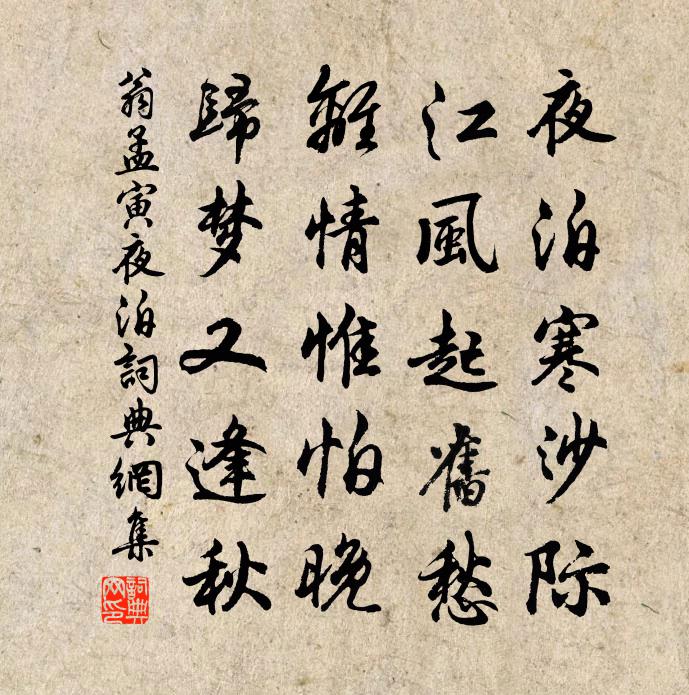 夜泊寒沙际
江風起舊愁
離情惟怕晚
歸梦又逢秋
翁孟寅夜泊詞典網集
詞典網印